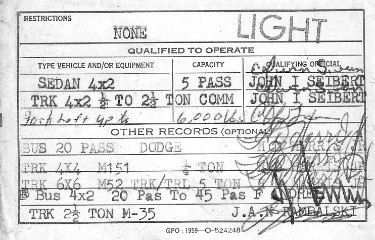 RESTRICTIONS
NONE
LIGHT
QUALIFIED TO OPERATE
TYPE VEHICLE AND/OR EQUIPMENT CAPACITY QUALIFYING OFFICIAL
SEDAN 4x2 5 PASS JOHN I SEIBERT
TRK 4X2 ½ TO 2½ TON COMM JOHN I SEIBERT
6,000 lbs
OTHER RECORDS (OPTIONAL)
BUS 20 PASS DODGE
TRK 4X4 M151 ¼ TON
TRK 6X6 M52 TRK/TRL 5 TON
Bus 4x2 20 Pas To 45 Pas F
TRK 2½ TON M-35 J.A.N RAMBALSKI
GPO : 1959 O-524248